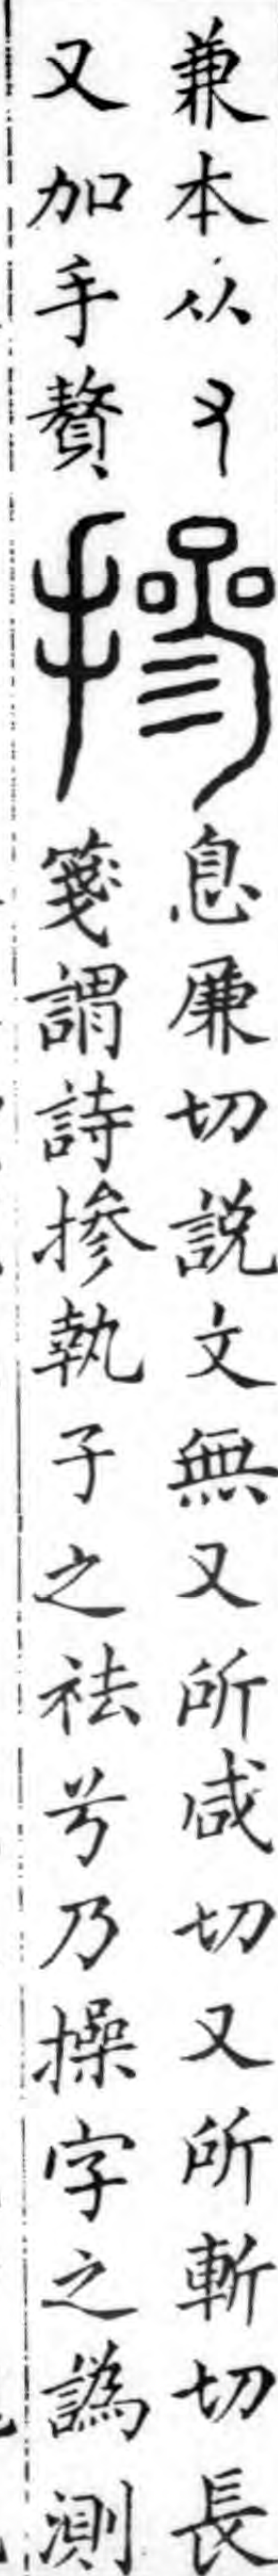 兼本从又
又加手贅
摻
息廉切説文無又所咸切又所斬切長
箋謂詩摻執子之袪兮乃操字之譌測